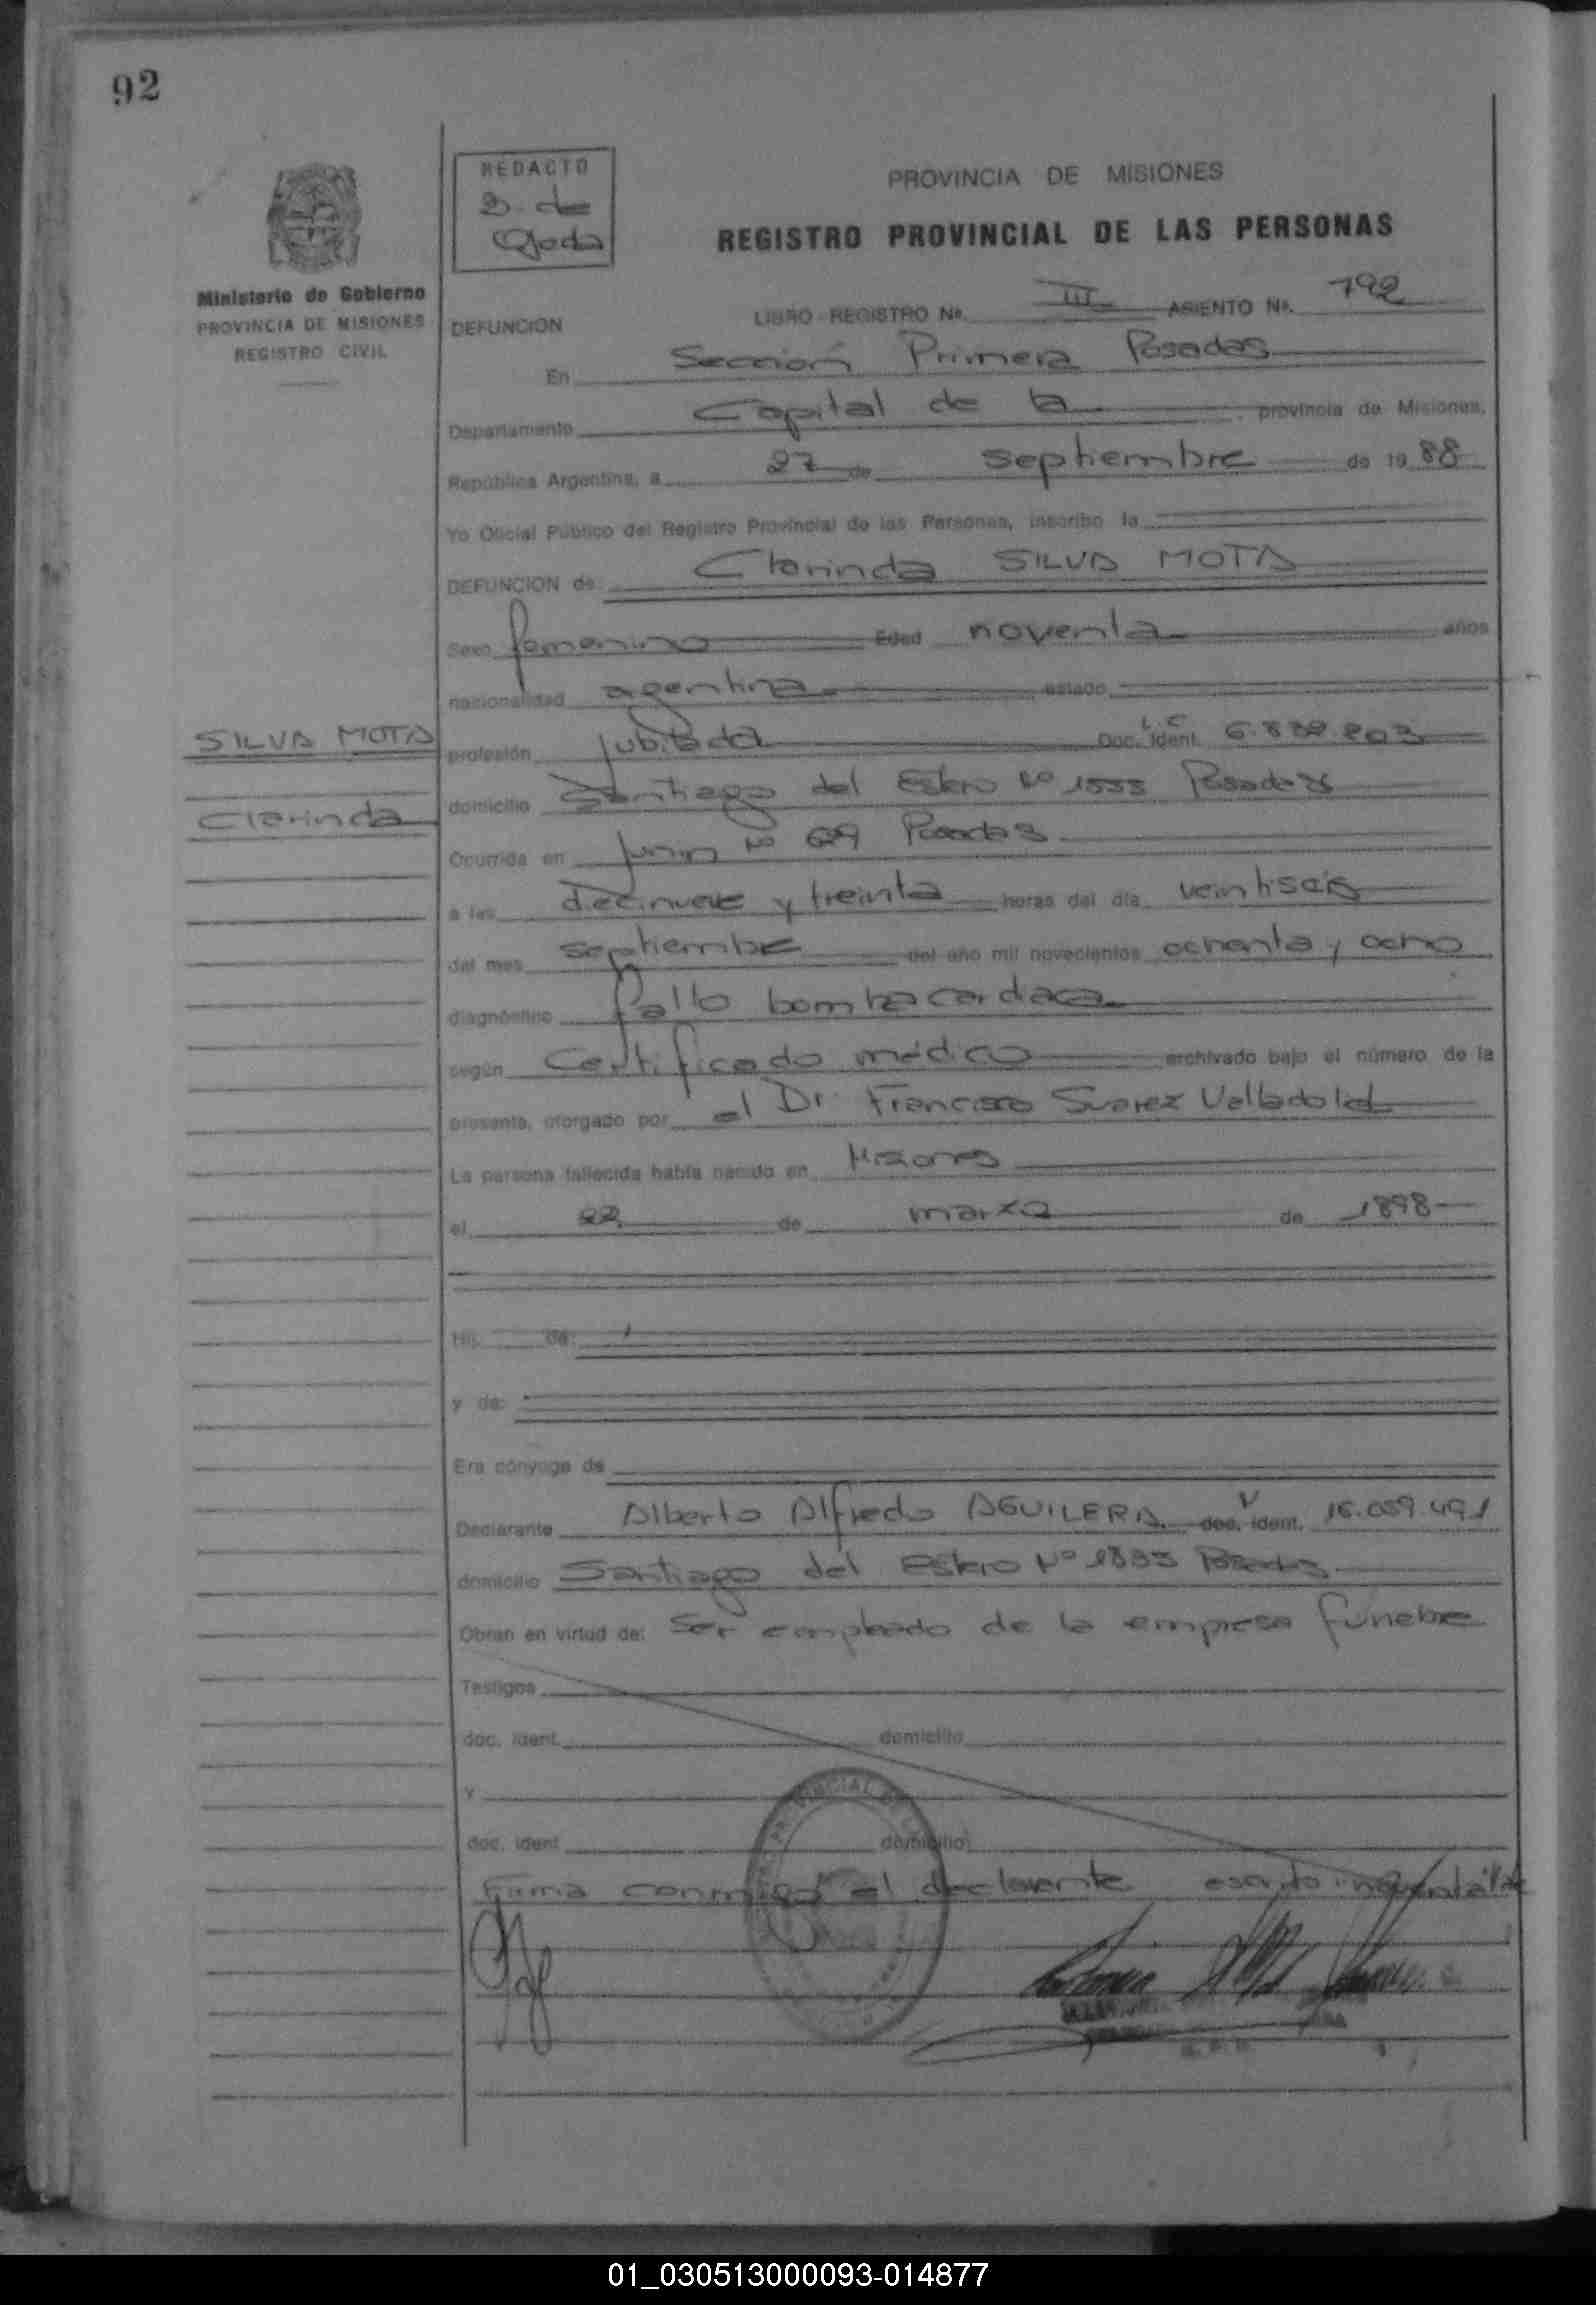 92
REDACTO
de
PROVINCIA DE MISIONES
REGISTRO PROVINCIAL DE LAS PERSONAS
Ministerio de Gobierno
PROVINCIA DE MISIONES
REGISTRO CIVIL
DEFUNCION
LIBRO REGISTRO Nº. III ASIENTO Nº. 792
En Sección Primera Posadas
Departamento Capital de la provincia de Misiones,
República Argentina, a 27 de septiembre de 1988
Yo Oficial Público del Registro Provincial de las Personas, inscribo la
DEFUNCION de: Clarinda SILVA MOTA
Sexo femenino Edad noventa años
nacionalidad agentina estado
SILVA MOTA
Clarinda
profesión jubilada Doc. Ident. L.C 6.839.803
domicilio Santiago del Estero Nº 1833 Posadas
Ocurrida en Junin Nº Posadas
a las diecinueve y treinta horas del día veintiseis
del mes septiembre del año mil novecientos ochenta y ocho
diagnóstico fallo bomba cardiaca
según Certificado médico archivado bajo el número de la
presente, otorgado por el Dr. Francisco Suarez Valladolid
La persona fallecida había nacido en Misiones
el 22 de marzo de 1898
Hij de:
y de:
Era cónyuge de
Declarante Alberto Alfredo AGUILERA doc. ident. 16.059.491
domicilio Santiago del Estero Nº 1833 Posadas
Obran en virtud de: ser empleado de la empresa fúnebre
Testigos
doc. ident. domicilio
y
doc. ident. domicilio
Firma conmigo el declarante
01_030513000093-014877